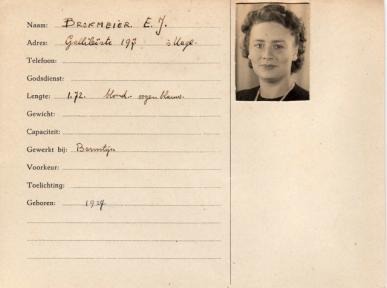 Naam: BROKMEIER E. J.
Adres: 197 's Hage.
Telefoon:
Godsdienst:
Lengte: 1.72. blond. ogen blauw.
Gewicht:
Capaciteit:
Gewerkt bij: Barnstijn
Voorkeur:
Toelichting:
Geboren: 1927